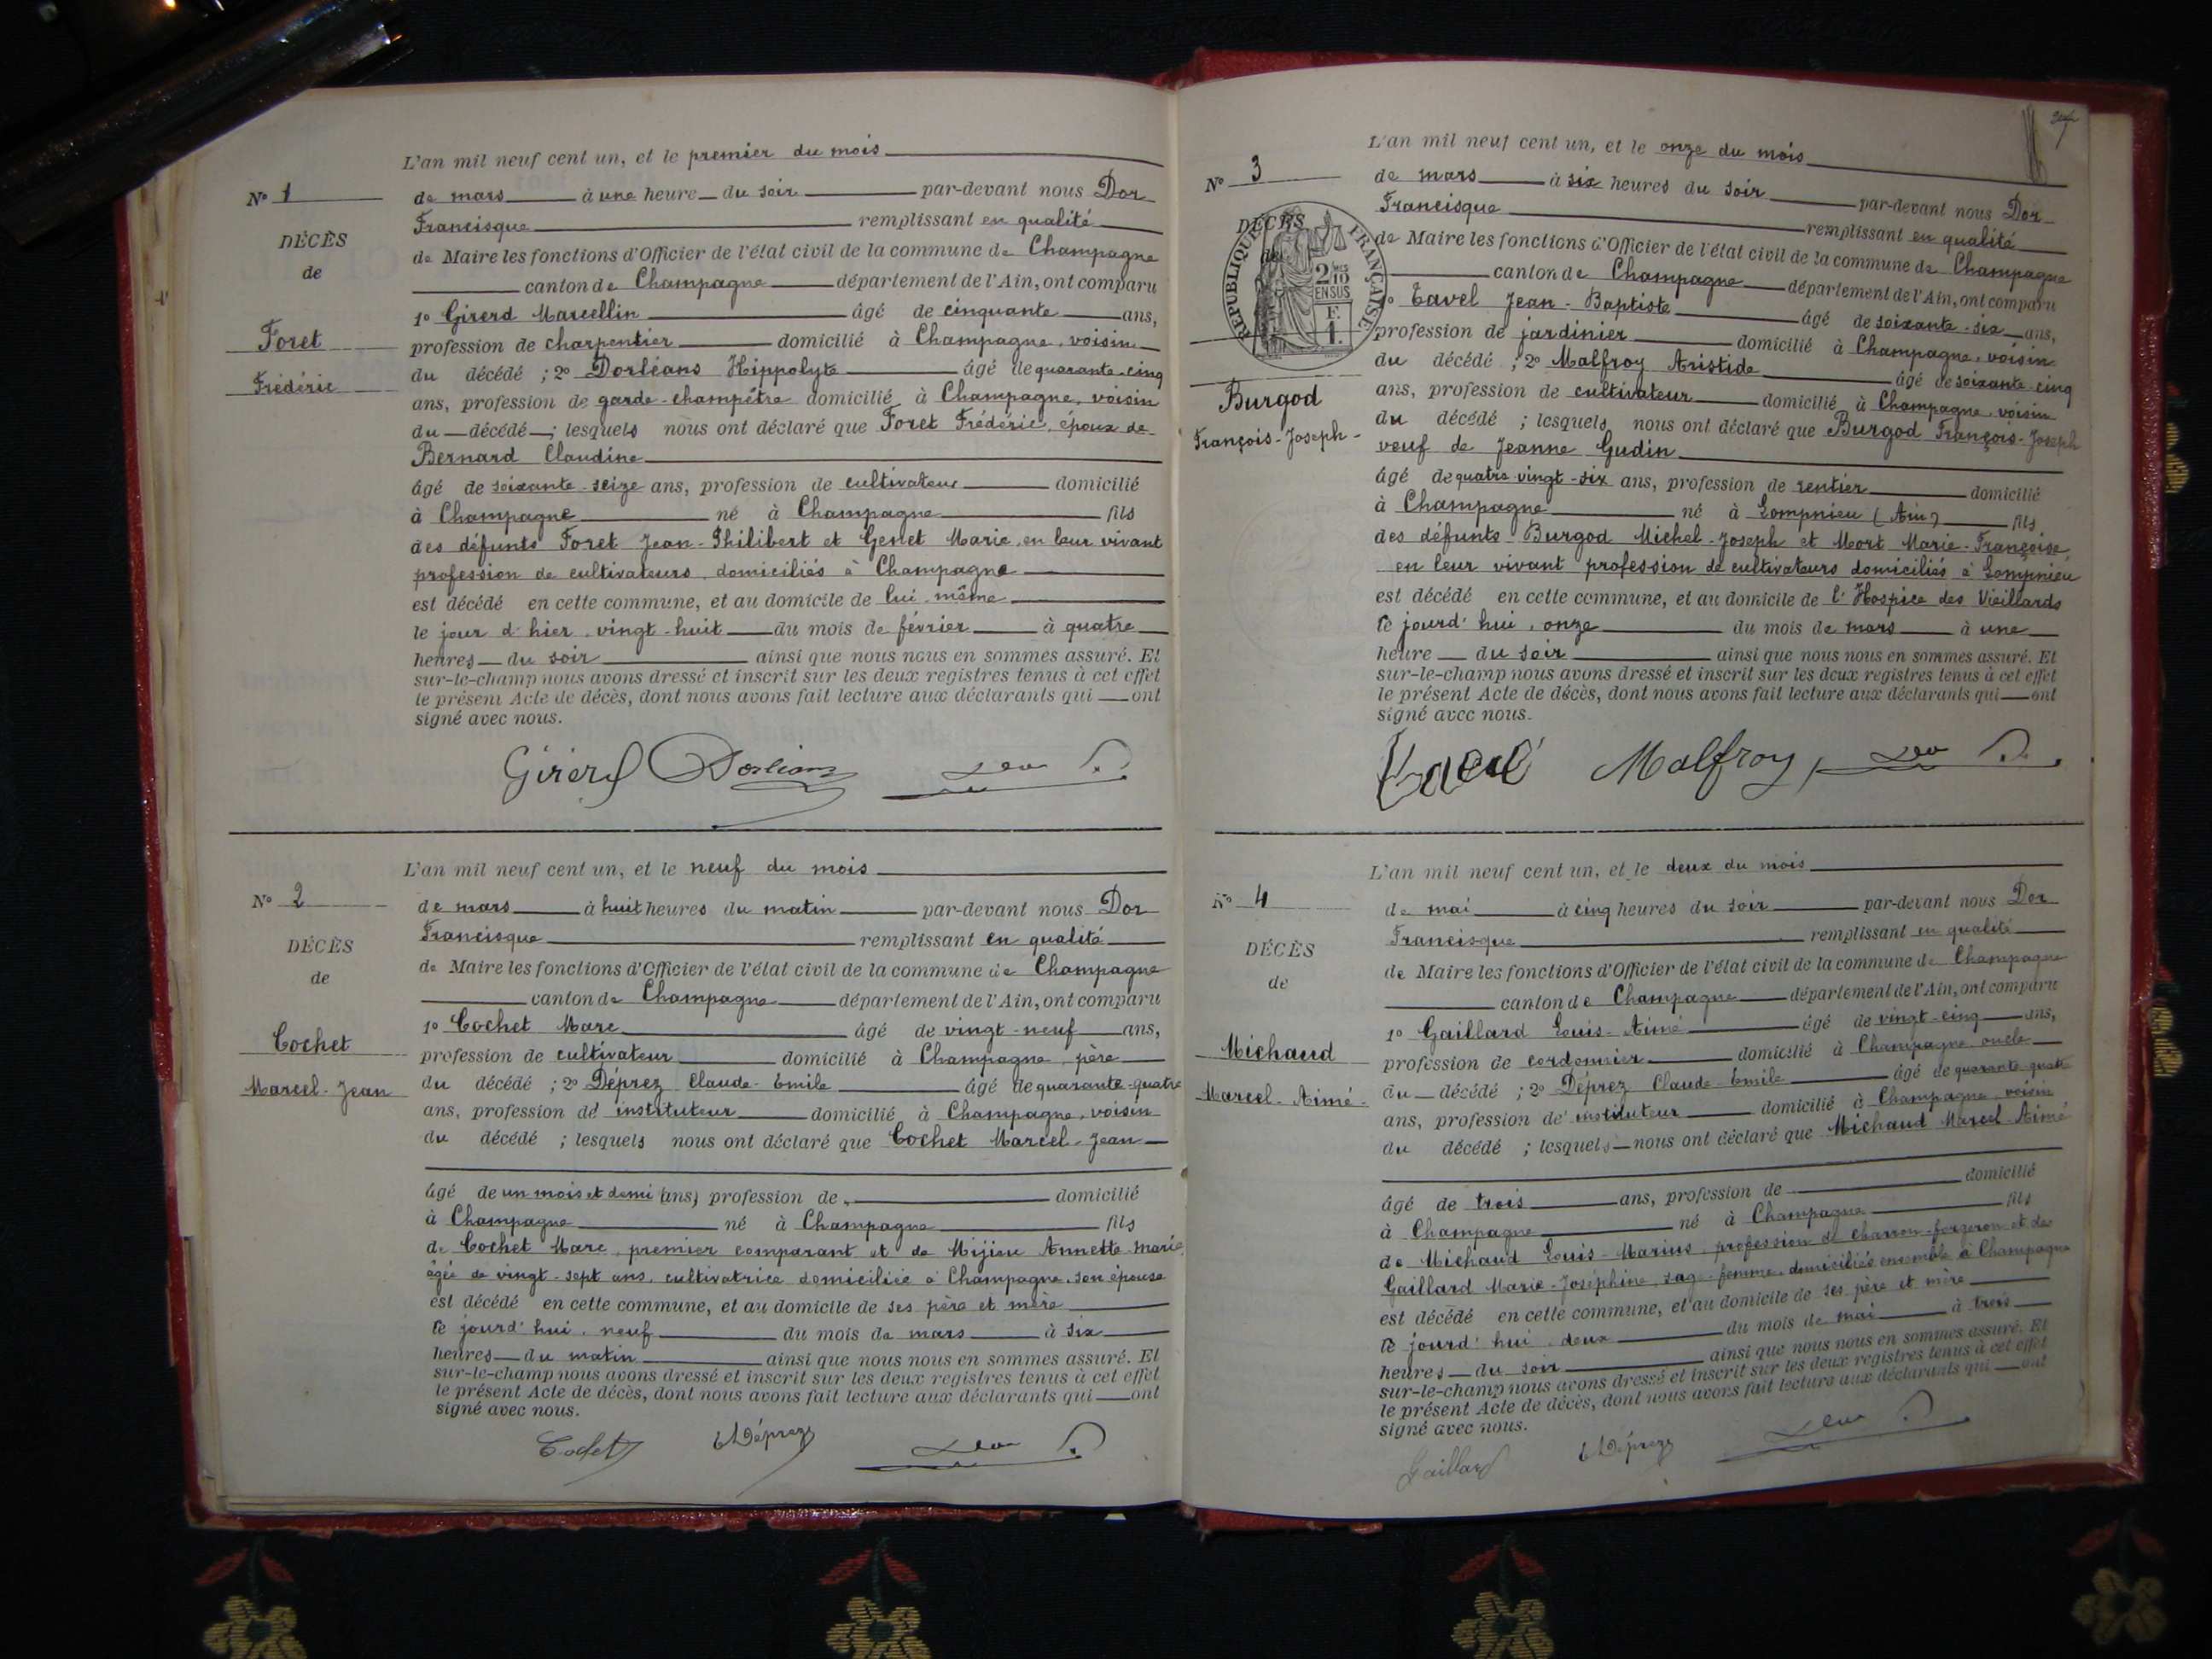 L'an mil neuf cent un, et le premier du mois
N° 1
de mars à une heure du soir par-devant nous Dor
Francisque remplissant en qualité
DÉCÈS
de Maire les fonctions d'Officier de l'état civil de la commune de Champagne
de
canton de Champagne département de l'Ain, ont comparu
1° Girerd Marcellin âgé de cinquante ans,
Foret
profession de charpentier domicilié à Champagne, voisin
Frédéric
du décédé ; 2° Dorléans Hippolyte âgé de quarante-cinq
ans, profession de garde-champêtre domicilié à Champagne, voisin
du décédé ; lesquels nous ont déclaré que Foret Frédéric, époux de
Bernard Claudine
âgé de soixante-seize ans, profession de cultivateur domicilié
à Champagne né à Champagne fils
des défunts Foret Jean-Philibert et Genet Marie, en leur vivant
profession de cultivateurs, domiciliés à Champagne
est décédé en cette commune, et au domicile de lui-même
le jour d'hier, vingt-huit du mois de février à quatre
heures du soir ainsi que nous nous en sommes assuré. Et
sur-le-champ nous avons dressé et inscrit sur les deux registres tenus à cet effet
le présent Acte de décès, dont nous avons fait lecture aux déclarants qui ont
signé avec nous.
Girerd Dorléans
L'an mil neuf cent un, et le neuf du mois
N° 2
de mars à huit heures du matin par-devant nous Dor
Francisque remplissant en qualité
DÉCÈS
de Maire les fonctions d'Officier de l'état civil de la commune de Champagne
de
canton de Champagne département de l'Ain, ont comparu
1° Cochet Marc âgé de vingt-neuf ans,
Cochet
profession de cultivateur domicilié à Champagne, père
Marcel-Jean
du décédé ; 2° Déprez Claude-Emile âgé de quarante-quatre
ans, profession de instituteur domicilié à Champagne, voisin
du décédé ; lesquels nous ont déclaré que Cochet Marcel-Jean
âgé de un mois et demi (ans) profession de domicilié
à Champagne né à Champagne fils
de Cochet Marc, premier comparant et de Mijieu Annette-Marie
âgée de vingt-sept ans, cultivatrice domiciliée à Champagne, son épouse
est décédé en cette commune, et au domicile de ses père et mère
le jourd'hui, neuf du mois de mars à six
heures du matin ainsi que nous nous en sommes assuré. Et
sur-le-champ nous avons dressé et inscrit sur les deux registres tenus à cet effet
le présent Acte de décès, dont nous avons fait lecture aux déclarants qui ont
signé avec nous.
Cochet Déprez
L'an mil neuf cent un, et le onze du mois
N° 3
de mars à six heures du soir par-devant nous Dor
Francisque remplissant en qualité
DÉCÈS
de Maire les fonctions d'Officier de l'état civil de la commune de Champagne
de
RÉPUBLIQUE FRANÇAISE
2/10 EN SUS
F.
1.
canton de Champagne département de l'Ain, ont comparu
1° Tavel Jean-Baptiste âgé de soixante-six ans,
profession de jardinier domicilié à Champagne, voisin
du décédé ; 2° Malfroy Aristide âgé de soixante-cinq
Burgod
ans, profession de cultivateur domicilié à Champagne, voisin
François-Joseph
du décédé ; lesquels nous ont déclaré que Burgod François-Joseph
veuf de Jeanne Gudin
âgé de quatre-vingt-six ans, profession de rentier domicilié
à Champagne né à Lompnieu (Ain) fils
des défunts Burgod Michel-Joseph et Mort Marie-Françoise,
en leur vivant profession de cultivateurs domiciliés à Lompnieu
est décédé en cette commune, et au domicile de l'Hospice des Vieillards
le jourd'hui, onze du mois de mars à une
heure du soir ainsi que nous nous en sommes assuré. Et
sur-le-champ nous avons dressé et inscrit sur les deux registres tenus à cet effet
le présent Acte de décès, dont nous avons fait lecture aux déclarants qui ont
signé avec nous.
Malfroy
L'an mil neuf cent un, et le deux du mois
N° 4
de mai à cinq heures du soir par-devant nous Dor
Francisque remplissant en qualité
DÉCÈS
de Maire les fonctions d'Officier de l'état civil de la commune de Champagne
de
canton de Champagne département de l'Ain, ont comparu
1° Gaillard Louis-Aimé âgé de vingt-cinq ans,
Michaud
profession de cordonnier domicilié à Champagne oncle
Marcel-Aimé
du décédé ; 2° Déprez Claude-Emile âgé de quarante-quatre
ans, profession de instituteur domicilié à Champagne, voisin
du décédé ; lesquels nous ont déclaré que Michaud Marcel-Aimé
âgé de trois ans, profession de domicilié
à Champagne né à Champagne fils
de Michaud Louis-Marius, profession de charron-forgeron et de
Gaillard Marie-Joséphine, sage-femme, domiciliés ensemble à Champagne
est décédé en cette commune, et au domicile de ses père et mère
le jourd'hui, deux du mois de mai à trois
heures du soir ainsi que nous nous en sommes assuré. Et
sur-le-champ nous avons dressé et inscrit sur les deux registres tenus à cet effet
le présent Acte de décès, dont nous avons fait lecture aux déclarants qui ont
signé avec nous.
Gaillard Déprez